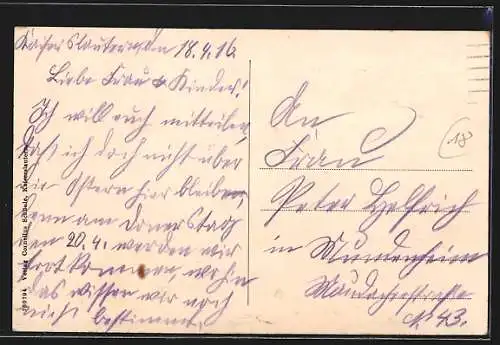 Kaiserslautern den 18.4.16.
Liebe Frau & Kinder!
Ich will euch mitteilen,
daß ich doch nicht über
die Ostern hier bleiben,
denn am Donerstag
den 20.4. werden wir
fort kommen, wohin
das wissen wir noch
nicht bestimmt.
An
Frau
Peter Helfrich
in Mundenheim
Maudacherstraße
No 43.
18
Verlag Cornelius Schmidt, Kaiserslautern